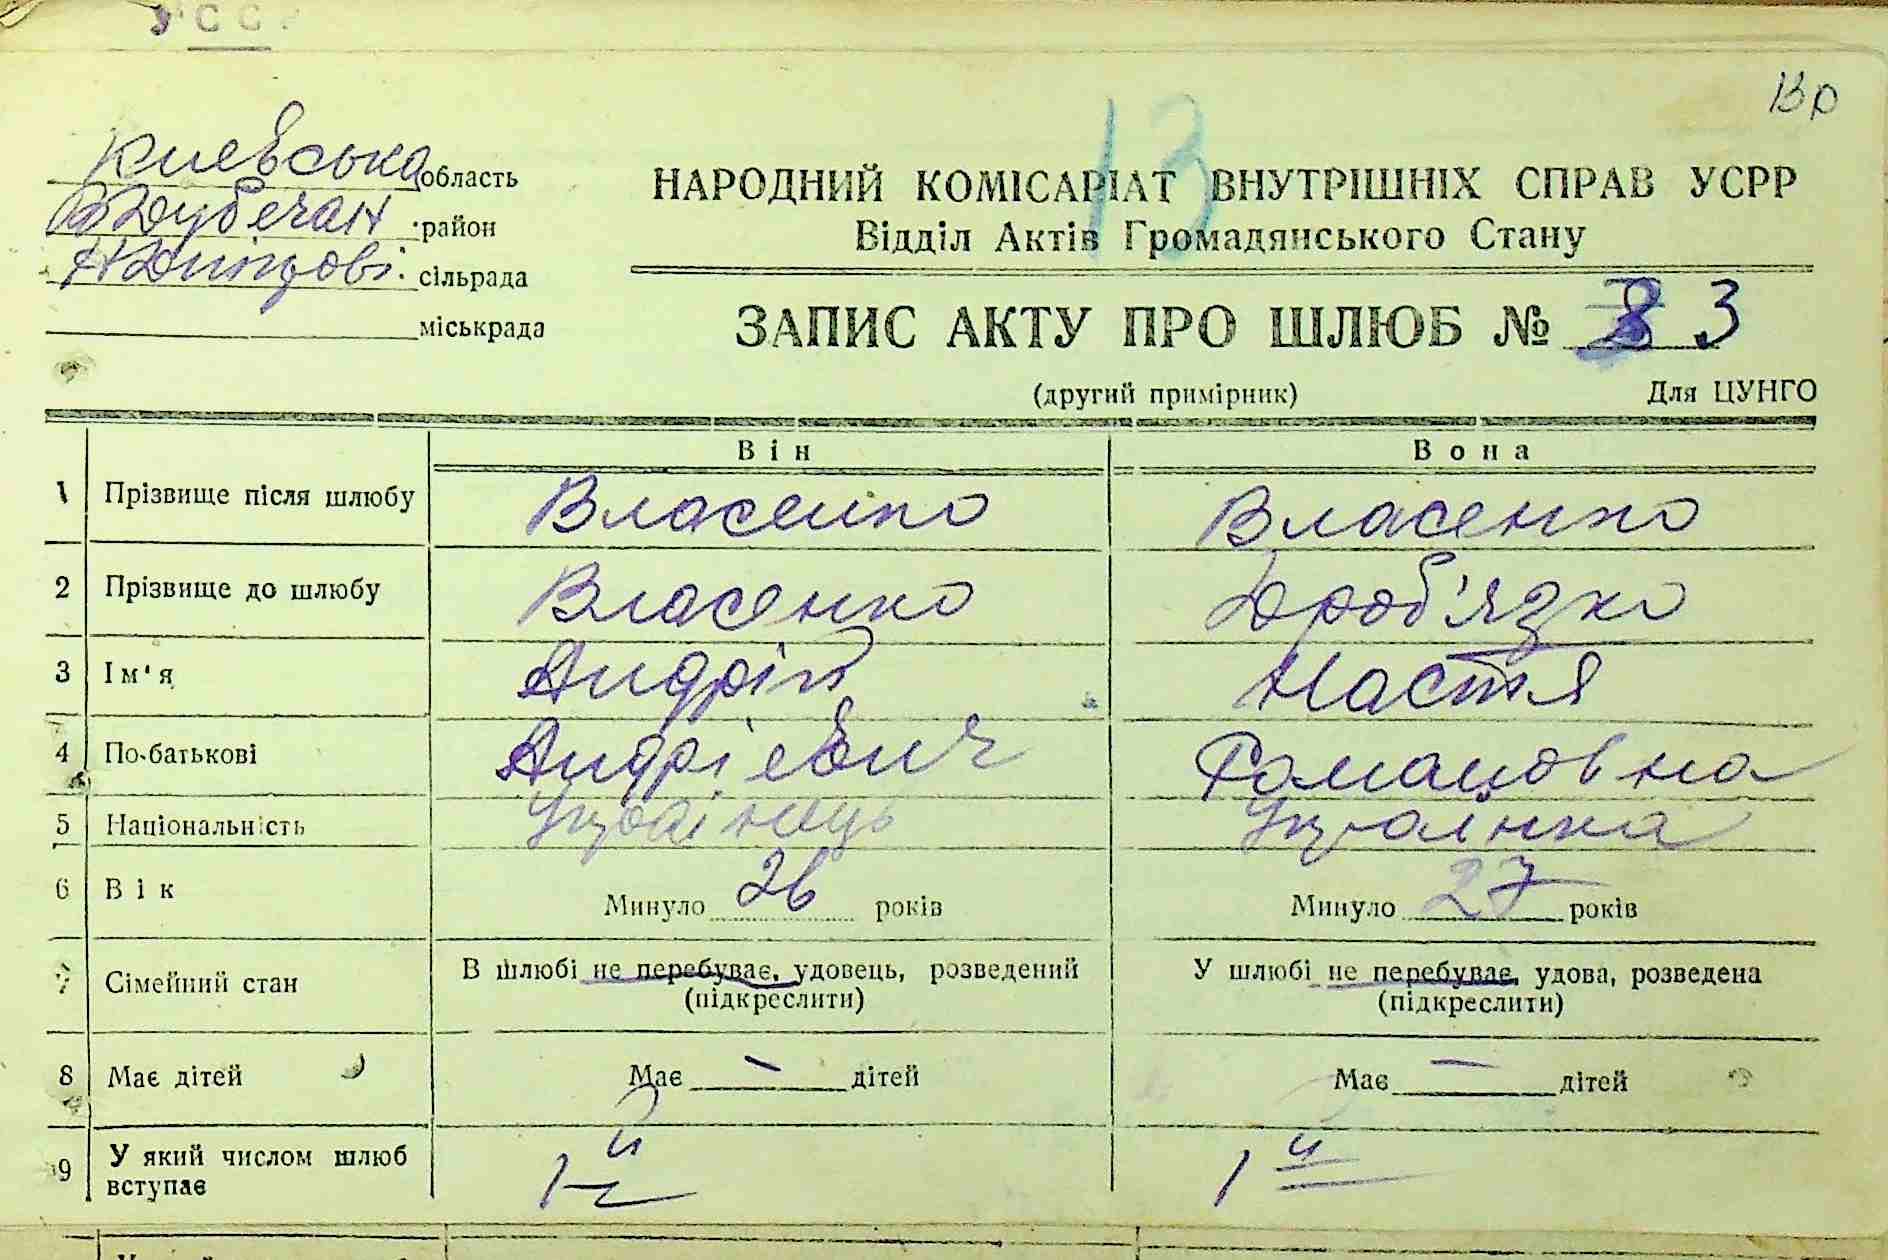 УССР
13
Київська область
В Дубечан. район
Н Дитрові. сільрада
міськрада
НАРОДНИЙ КОМІСАРІАТ ВНУТРІШНІХ СПРАВ УСРР
Відділ Актів Громадянського Стану
ЗАПИС АКТУ ПРО ШЛЮБ № 3
(другий примірник) Для ЦУНГО
Він Вона
1 Прізвище після шлюбу Власенко Власенко
2 Прізвище до шлюбу Власенко Дроб'язко
3 Ім'я Андрій Настя
4 По-батькові Андрієвич Романовна
5 Національність Українець Українка
6 Вік Минуло 26 років Минуло 27 років
7 Сімейний стан В шлюбі не перебуває, удовець, розведений У шлюбі не перебуває, удова, розведена
(підкреслити) (підкреслити)
8 Має дітей Має — дітей Має — дітей
9 У який числом шлюб вступає 1-й 1й